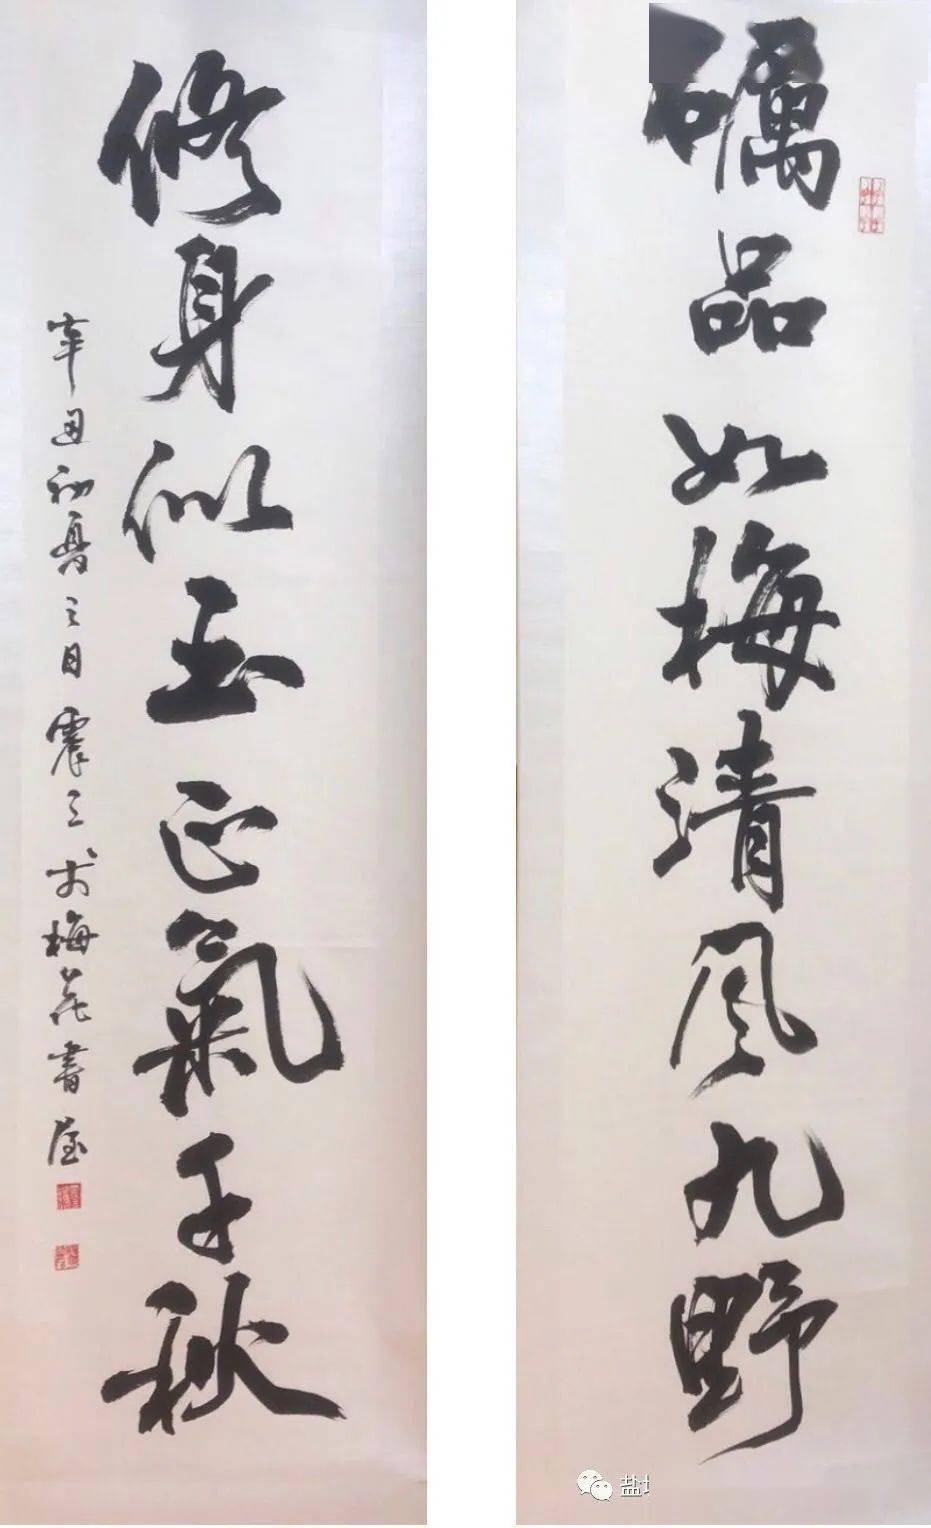 礪品如梅清風九野
修身似玉正氣千秋
辛丑初夏之日震之於梅花書屋
盐